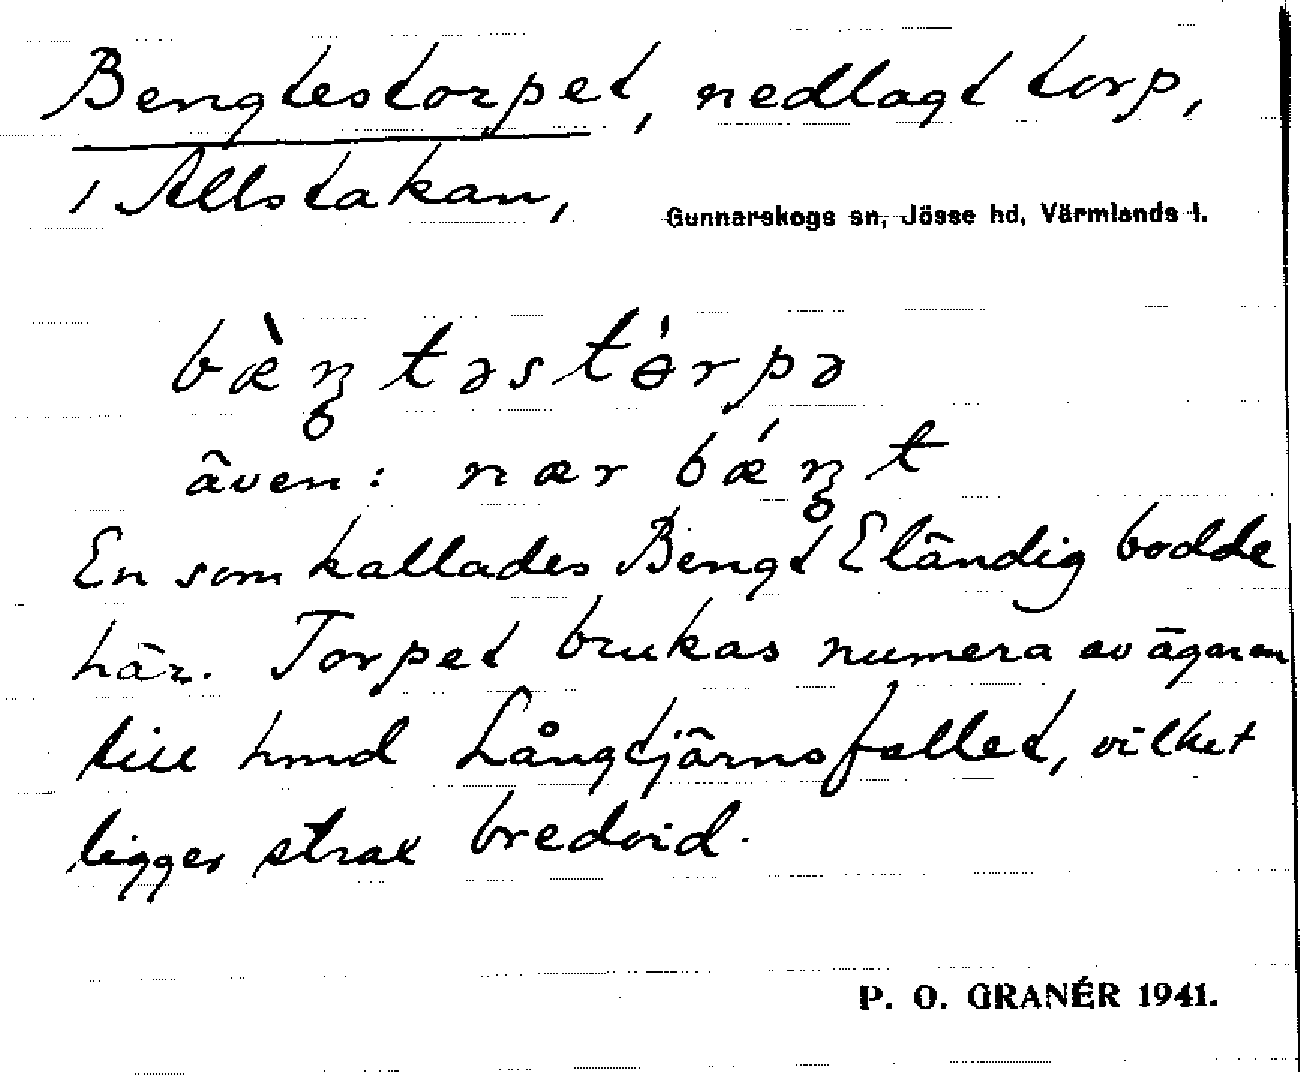 Bengtestorpet, nedlagt torp,
i Allstakan,
Gunnarskogs sn, Jösse hd, Värmlands l.
även: nær
En som kallades Bengt Eländig bodde
här. Torpet brukas numera av ägaren
till hmd Långtjärnsfallet, vilket
ligger strax bredvid.
P. O. GRANÉR 1941.